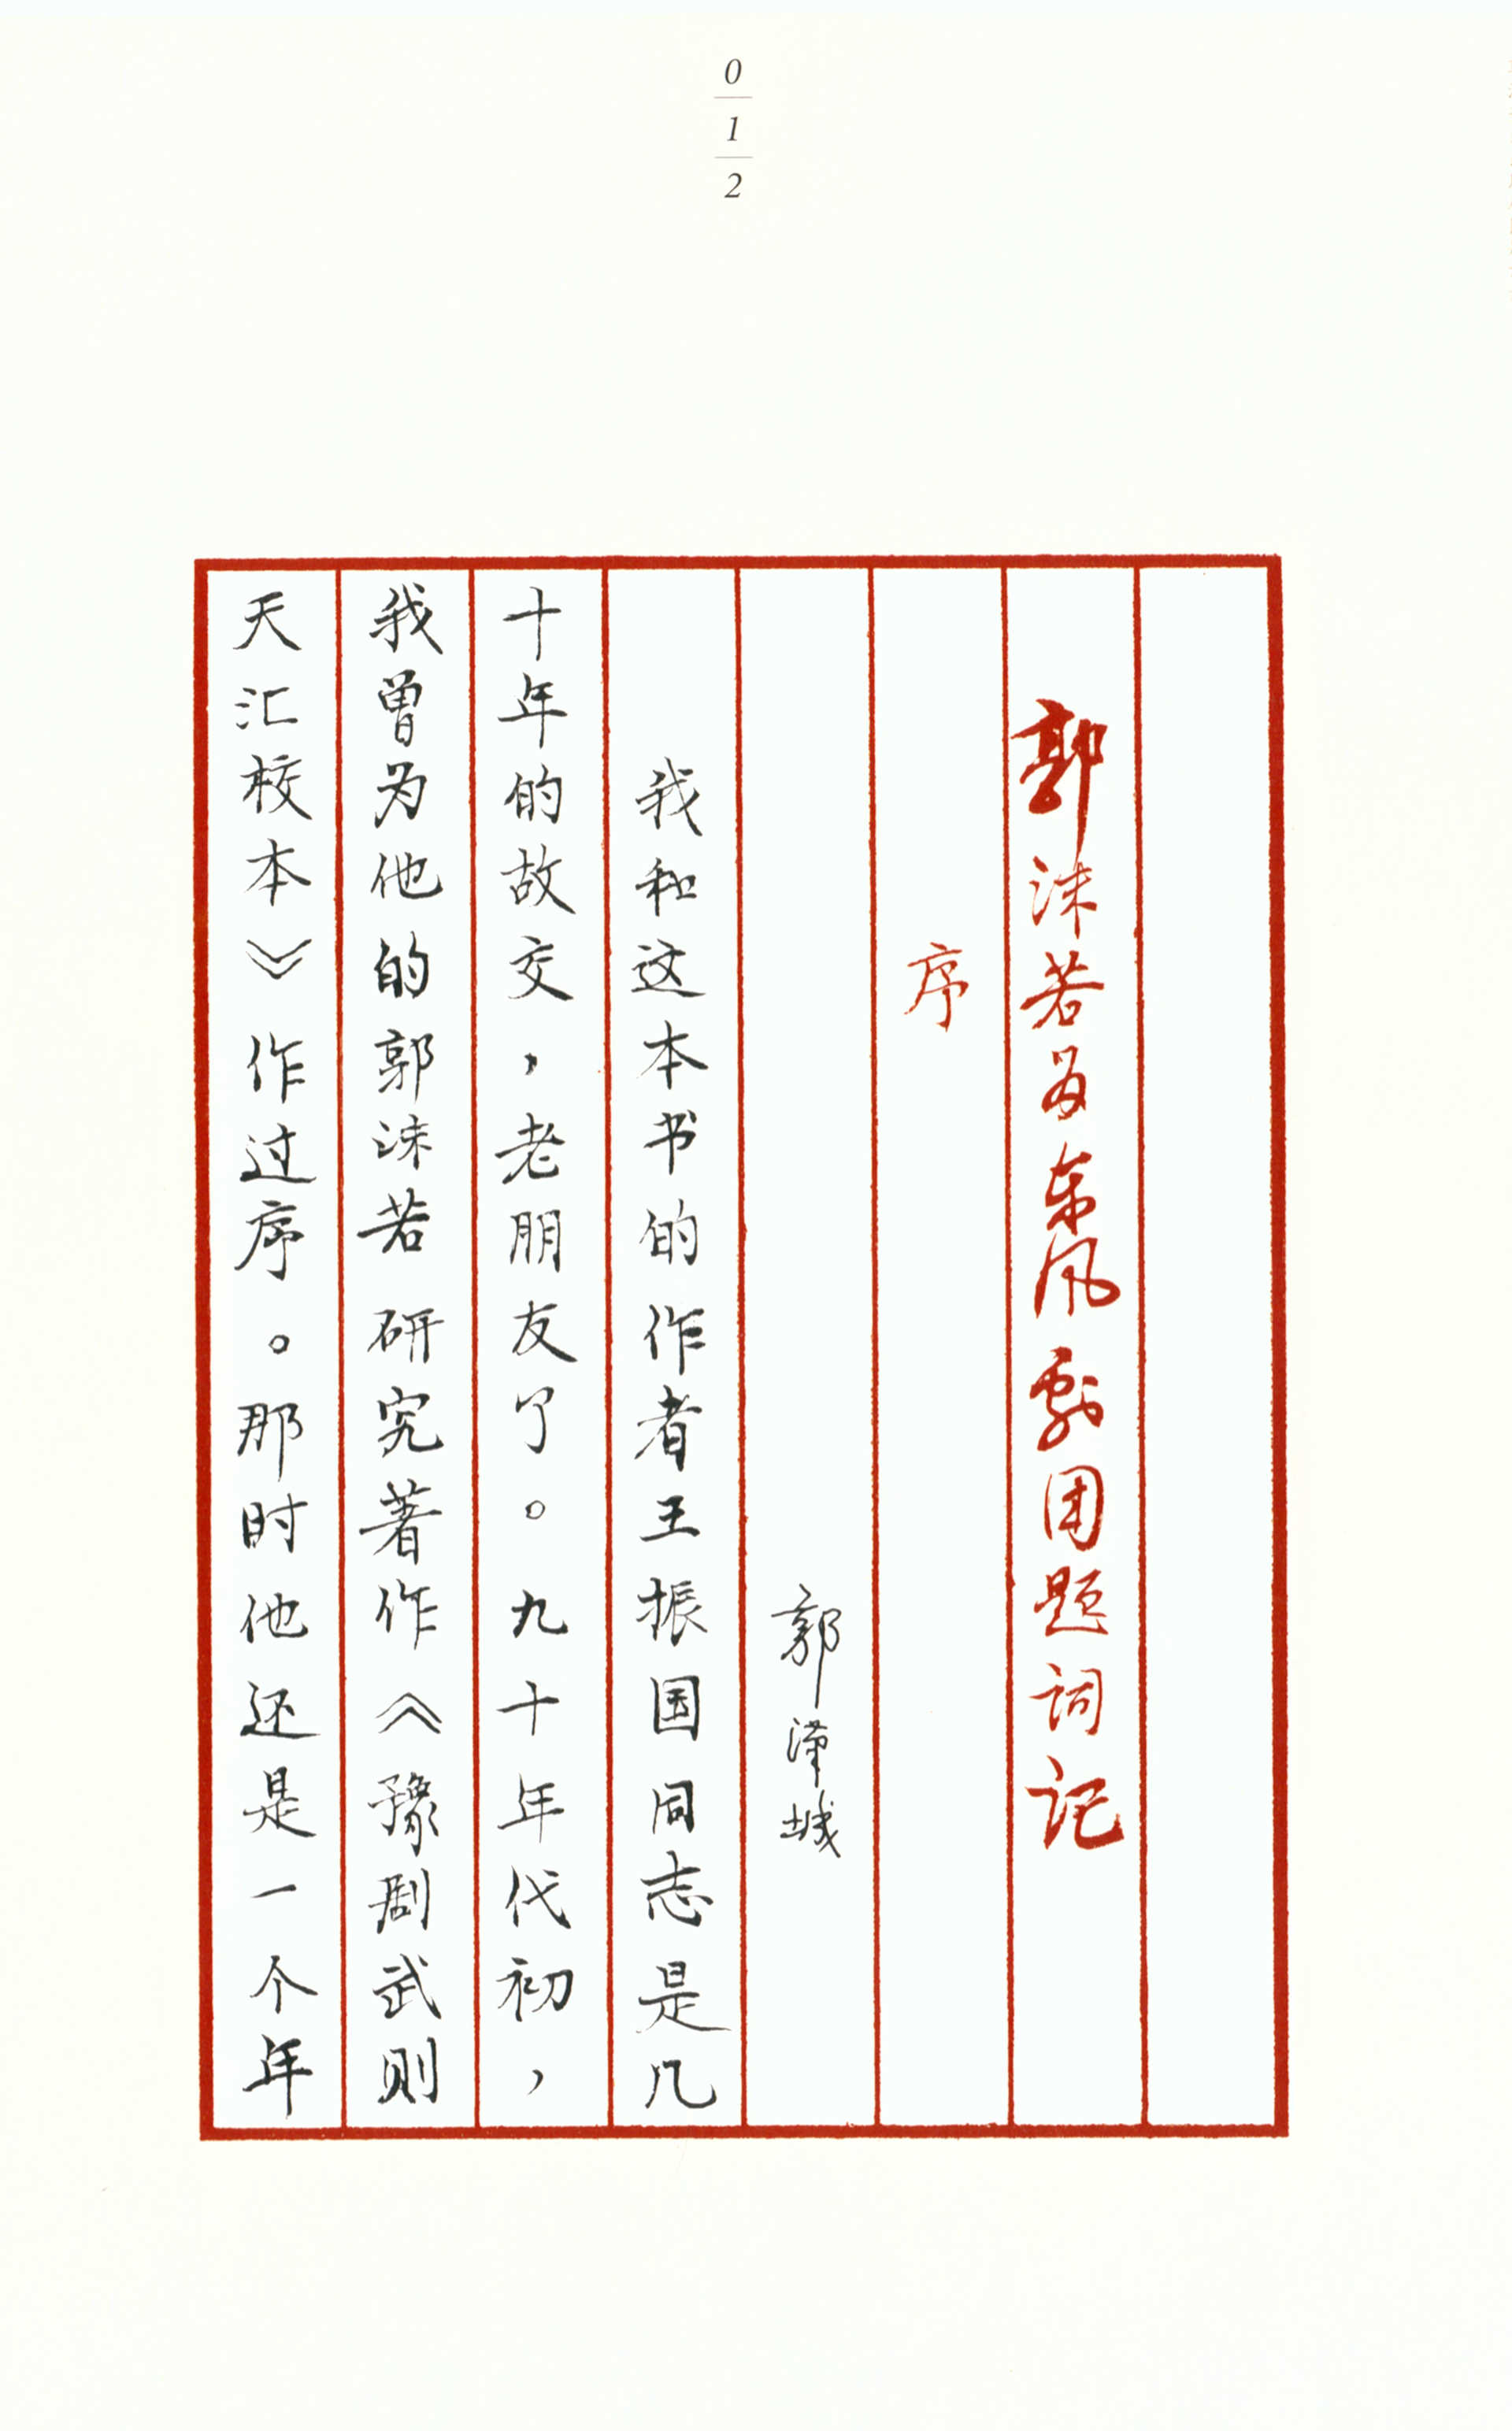 0
1
2
郭沫若为东风剧团题词记
序
郭汉城
我和这本书的作者王振国同志是几
十年的故交，老朋友了。九十年代初，
我曾为他的郭沫若研究著作《豫剧武则
天汇校本》作过序。那时他还是一个年